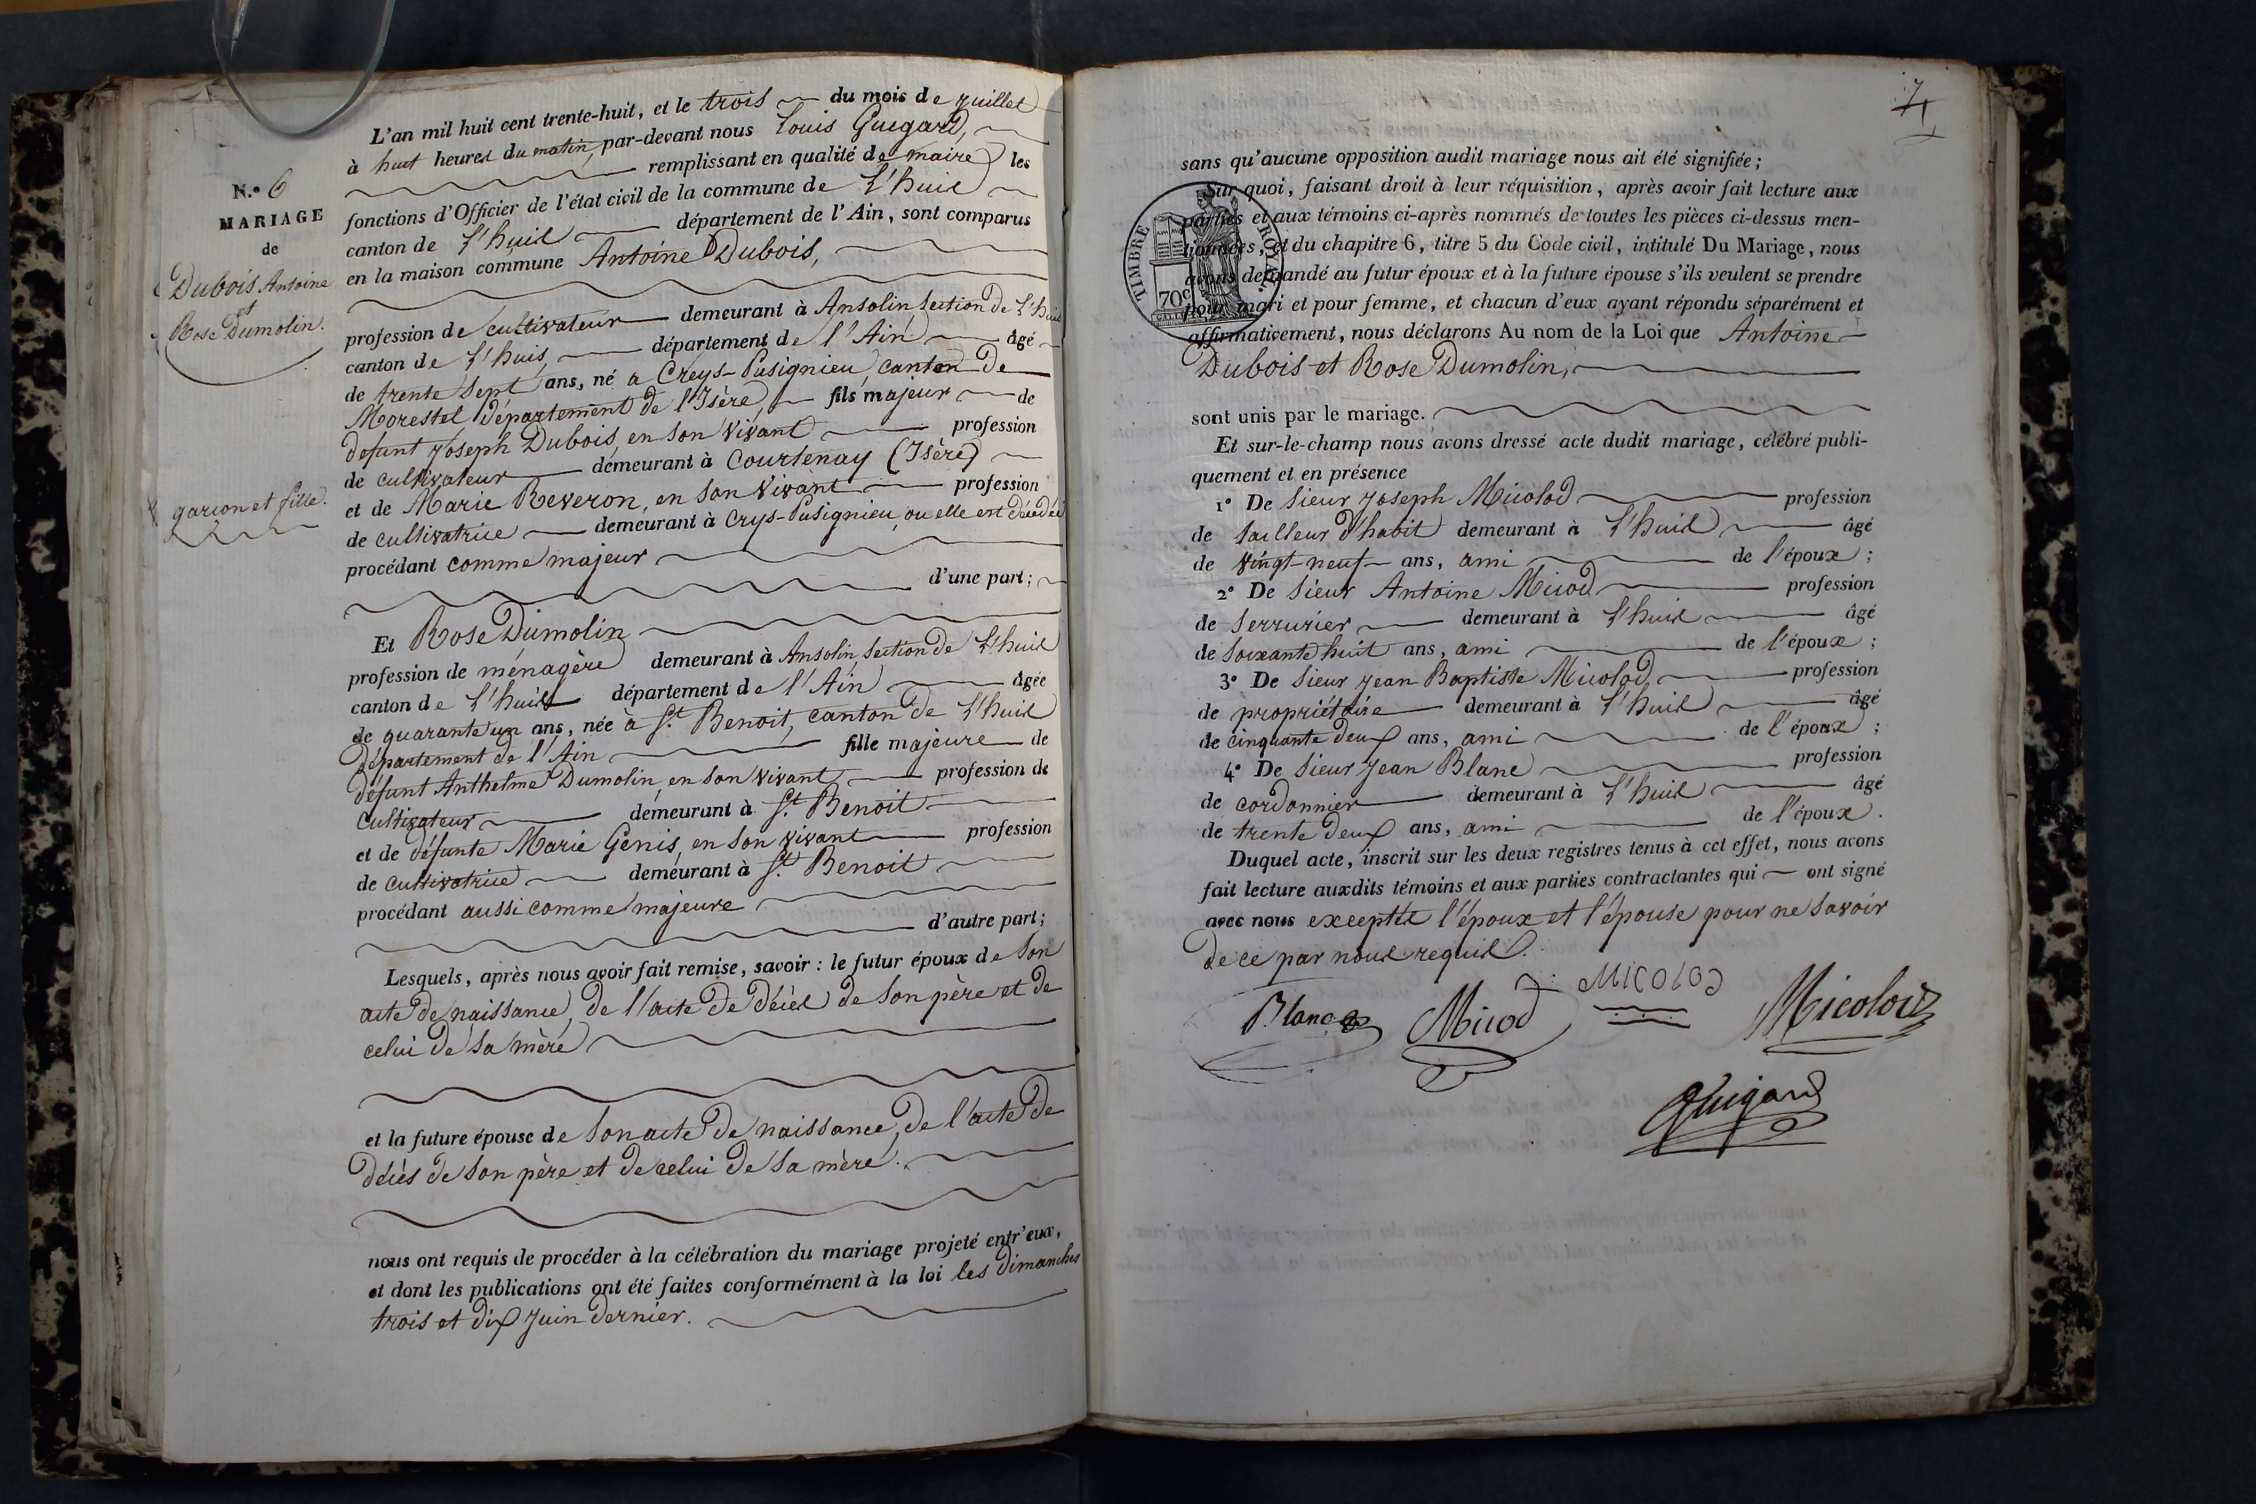 L'an mil huit cent trente-huit, et le trois du mois de juillet
à huit heures du matin, par-devant nous Louis Guigard,
remplissant en qualité de maire les
fonctions d'Officier de l'état civil de la commune de L'huis
canton de L'huis département de l'Ain, sont comparus
en la maison commune Antoine Dubois,
profession de cultivateur demeurant à Ansolin section de L'huis
canton de L'huis département de l'Ain âgé
de trente sept ans, né à Creys-Pusignieu canton de
Morestel département de l'Isère, fils majeur de
defunt Joseph Dubois, en son vivant profession
de cultivateur demeurant à Courtenay (Isère)
et de Marie Reveron, en son vivant profession
de cultivatrice demeurant à Crys-Pusignieu, ou elle est décédée
procédant comme majeur
d'une part;
Et Rose Dumolin
profession de ménagère demeurant à Ansolin, section de L'huis
canton de L'huis département de l'Ain âgée
de quarante un ans, née à St. Benoit, canton de L'huis
département de l'Ain fille majeure de
défunt Anthelme Dumolin, en son vivant, profession de
cultivateur demeurant à St. Benoit
et de défunte Marie Genis, en son vivant profession
de cultivatrice demeurant à St. Benoit
procédant aussi comme majeure
d'autre part;
Lesquels, après nous avoir fait remise, savoir : le futur époux de son
acte de naissance, de l'acte de décès de son père et de
celui de sa mère
et la future épouse de son acte de naissance, de l'acte de
décès de son père et de celui de sa mère.
nous ont requis de procéder à la célébration du mariage projeté entr'eux,
et dont les publications ont été faites conformément à la loi les dimanches
trois et dix Juin dernier.
N.° 6
MARIAGE
de
Dubois Antoine
et
Rose Dumolin.
garcon et fille.
7
sans qu'aucune opposition audit mariage nous ait été signifiée;
Sur quoi, faisant droit à leur réquisition, après avoir fait lecture aux
parties et aux témoins ci-après nommés de toutes les pièces ci-dessus men-
tionnées, et du chapitre 6, titre 5 du Code civil, intitulé Du Mariage, nous
avons demandé au futur époux et à la future épouse s'ils veulent se prendre
pour mari et pour femme, et chacun d'eux ayant répondu séparément et
affirmativement, nous déclarons Au nom de la Loi que Antoine
Dubois et Rose Dumolin,
sont unis par le mariage.
Et sur-le-champ nous avons dressé acte dudit mariage, célébré publi-
quement et en présence
1° De sieur Joseph Micolod profession
de tailleur d'habit demeurant à L'huis âgé
de vingt-neuf ans, ami de l'époux;
2° De sieur Antoine Micod profession
de serrurier demeurant à L'huis âgé
de soixante huit ans, ami de l'époux;
3° De sieur Jean Baptiste Micolod, profession
de propriétaire demeurant à L'huis âgé
de cinquante deux ans, ami de l'époux;
4° De sieur Jean Blanc profession
de cordonnier demeurant à L'huis âgé
de trente deux ans, ami de l'époux.
Duquel acte, inscrit sur les deux registres tenus à cet effet, nous avons
fait lecture auxdits témoins et aux parties contractantes qui ont signé
avec nous exceptés l'époux et l'épouse pour ne savoir
de ce par nous requis.
Blanc Micod MICOLOD Micolod
Guigard
TIMBRE ROYAL.
70c